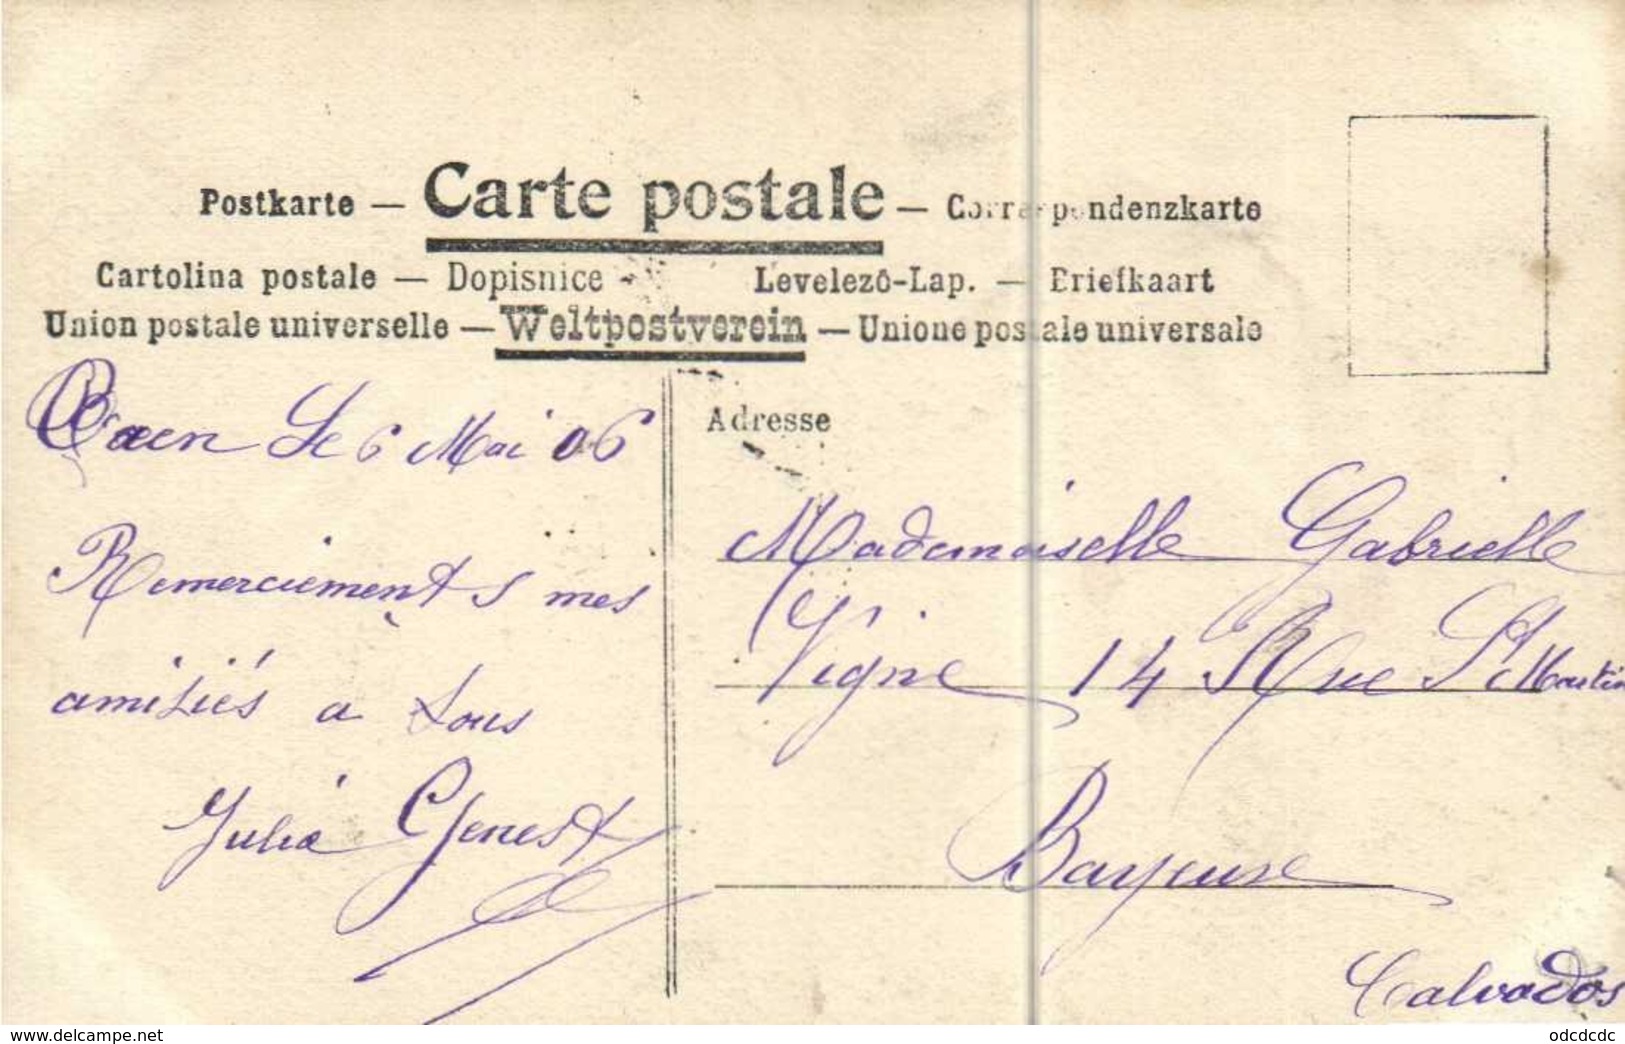 Postkarte — Carte postale — Correspondenzkarte
Cartolina postale — Dopisnice - Levelezô-Lap. — Briefkaart
Union postale universelle — Weltpostverein — Unione postale universale
Caen Le 6 Mai 06
Remerciements mes
amitiés a tous
Julia Genest
Adresse
Mademoiselle Gabrielle
Vigne 14 Rue St Martin
Bayeuxe
Calvados
www.delcampe.net
odcdcdc